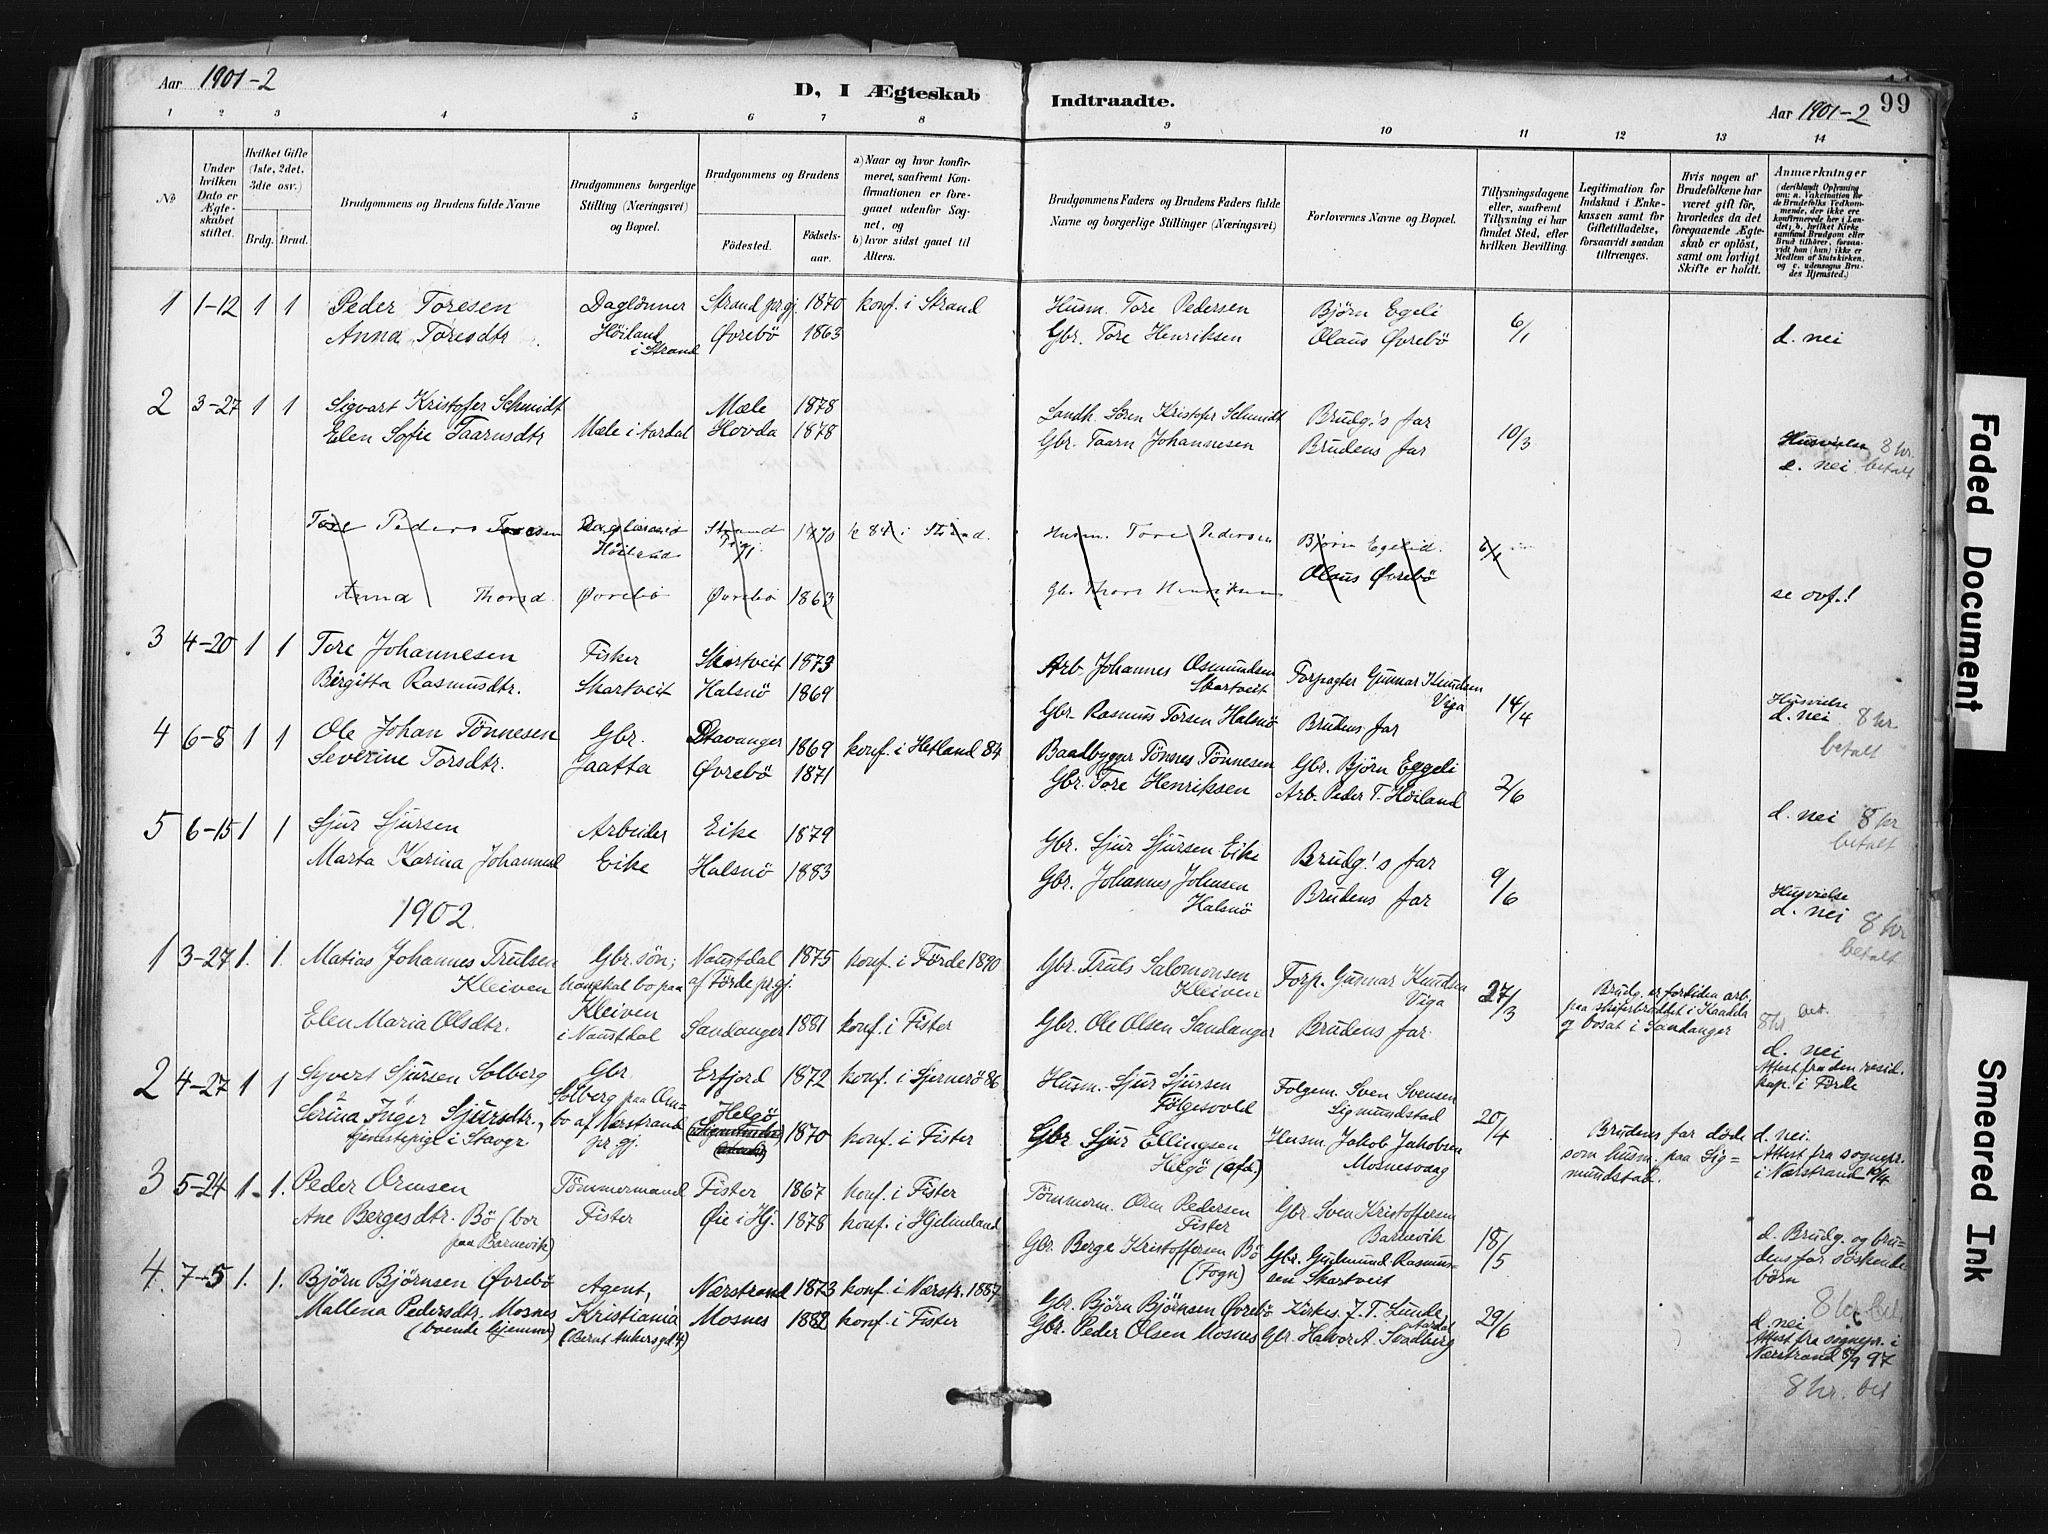 Aar 1901-2
D, I Ægteskab
Indtraadte.
Aar 1901-2
99
1 2 3 4 5 6 7 8 9 10 11 12 13 14
No
Under hvilken Dato er Ægteskabet stiftet.
Hvilket Gifte (1ste, 2det, 3die osv.)
Brdg. Brud.
Brudgommens og Brudens fulde Navne
Brudgommens borgerlige Stilling (Næringsvei) og Bopæl.
Brudgommens og Brudens
Födested.
Födselsaar.
a) Naar og hvor konfirmeret, saafremt Konfirmationen er foregaaet udenfor Sognet, og
b) hvor sidst gaaet til Alters.
Brudgommens Faders og Brudens Faders fulde Navne og borgerlige Stillinger (Næringsvei)
Forlovernes Navne og Bopæl.
Tillysningsdagene eller, saafremt Tillysning ei har fundet Sted, efter hvilken Bevilling.
Legitimation for Indskud i Enkekassen samt for Giftetilladelse, forsaavidt saadan tiltrænges.
Hvis nogen af Brudefolkene har været gift før, hvorledes da det foregaaende Ægteskab er oplöst, samt om lovligt Skifte er holdt.
Anmærkninger
(deriblandt Oplysning om: a. Vakcination for de Brudefolks Vedkommende, der ikke ere konfirmerede her i Landet; b. hvilket Kirkesamfund Brudgom eller Brud tilhører, forsaavidt han (hun) ikke er Medlem af Statskirken, og c. udensogns Brudes Hjemsted.)
1 1-12 1 1 Peder Toresen Daglönner Strand prgj. 1870 konf. i Strand Husm. Tore Pedersen Björn Egeli 6/1
Anna Toresdtr. Höiland i Strand Øvrebö 1863 Gbr. Tore Henriksen Olaus Øvrebö d. nei
2 3-27 1 1 Sigvart Kristofer Schmidt Mæle 1878 Landh. Sören Kristofer Schmidt Brudg.'s far
Elen Sofie Taarnsdtr Mæle i Aardal Hovda 1878 Gbr. Taarn Johannesen Brudens far 10/3 Husvielse 8 kr.
d. nei betalt
Tore Peders Toresen Höiland Strand Prgj. 1870 k 84 i Strand. Husm. Tore Pedersen Björn Egelid. 6/1
Olaus Øvrebö
Anna Thorsd. Øvrebö Øvrebö 1863 Gb. Thore Henriksen se ovf.!
3 4-20 1 1 Tore Johannesen Fisker Skartveit 1873 Arb. Johannes Osmundsen Skartveit Forpagter Gunnar Knudsen Viga 14/4
Birgitta Rasmusdtr. Skartveit Halsnö 1869 Gbr. Rasmus Torsen Halsnö Brudens far Husvielse
d. nei 8 kr
betalt
4 6-8 1 1 Ole Johan Tönnesen Gbr. Stavanger 1869 konf. i Hetland 84 Baadbygger Tönnes Tönnesen Gbr. Björn Eggeli
Severine Torsdtr. Jaatta Øvrebö 1871 Gbr. Tore Henriksen Arb. Peder T. Höiland 2/6
d. nei 8 kr
betalt
5 6-15 1 1 Sjur Sjursen Arbeider Eike 1879 Gbr. Sjur Sjursen Eike Brudg.'s far
Marta Karina Johannesd Eike Halsnö 1883 Gbr. Johannes Johnsen Halsnö Brudens far 9/6
Husvielse
d. nei 8 kr
betalt
1902
1 3-27 1. 1. Matias Johannes Trulsen Kleiven Gbr.sön; han skal bo paa Kleiven i Naustdal Naustdal af Förde prgj. 1875 konf. i Förde 1890 Gbr. Truls Salomonsen Kleiven Forp. Gunnar Knudsen Viga 27/3 Brudg. er fortiden arb. paa skiferbruddet i Kaadda og bosat i Sandanger
Elen Maria Olsdtr. Sandanger 1881 konf. i Fister Gbr. Ole Olsen Sandanger Brudens far. 8 kr. bet.
d. nei
Attest fra den resid. kap. i Förde
2 4-27 1 1 Syvert Sjursen Solberg Gbr. Solberg paa Ombo af Nærstrand pr.gj. Erfjord 1872 konf. i Sjernerö 86 Husm. Sjur Sjursen Fölgesvold Folgem. Sven Svensen Sigmundstad 20/4
Serina Inger Sjursdtr., tjenestepige i Stavgr Helgö 1870 konf. i Fister Gbr Sjur Ellingsen Helgö (afd.) Husm. Jakob Jakobsen Mosnesvaag Brudens far döde som husm. paa Sigmundstad. d. nei.
Attest fra sognepr. i Nærstrand 19/4
3 5-24 1. 1. Peder Ormsen Tömmermand Fister 1867 konf. i Fister Tömmerm. Orm Pedersen Fister Gbr. Sven Kristoffersen Barnevik 18/5
Ane Bergesdtr. Bö (bor paa Barnevik) Fister Øie i Hj. 1878 konf. i Hjelmeland Gbr. Berge Kristoffersen Bö (Fogn) Gbr. Gudmund Rasmussen Skartveit d. Brudg. og brudens far söskendebörn
8 kr. bet
4. 7-5 1. 1. Björn Björnsen Øvrebö Agent, Nærstrand 1873 konf. i Nærstr. 1887 Gbr. Björn Björnsen Øvrebö Kirkes. J. T. Lunde Aardal 29/6
Mallena Pedersdtr. Mosnes (boende hjemme) Kristiania (Bernt Ankersgd 4) Mosnes 1882 konf. i Fister Gbr. Peder Olsen Mosnes Gbr. Halvor A. Svadberg d. nei
Attest fra sognepr. i Nærstrand 8/9 97
8 kr. bet
Faded Document
Smeared Ink